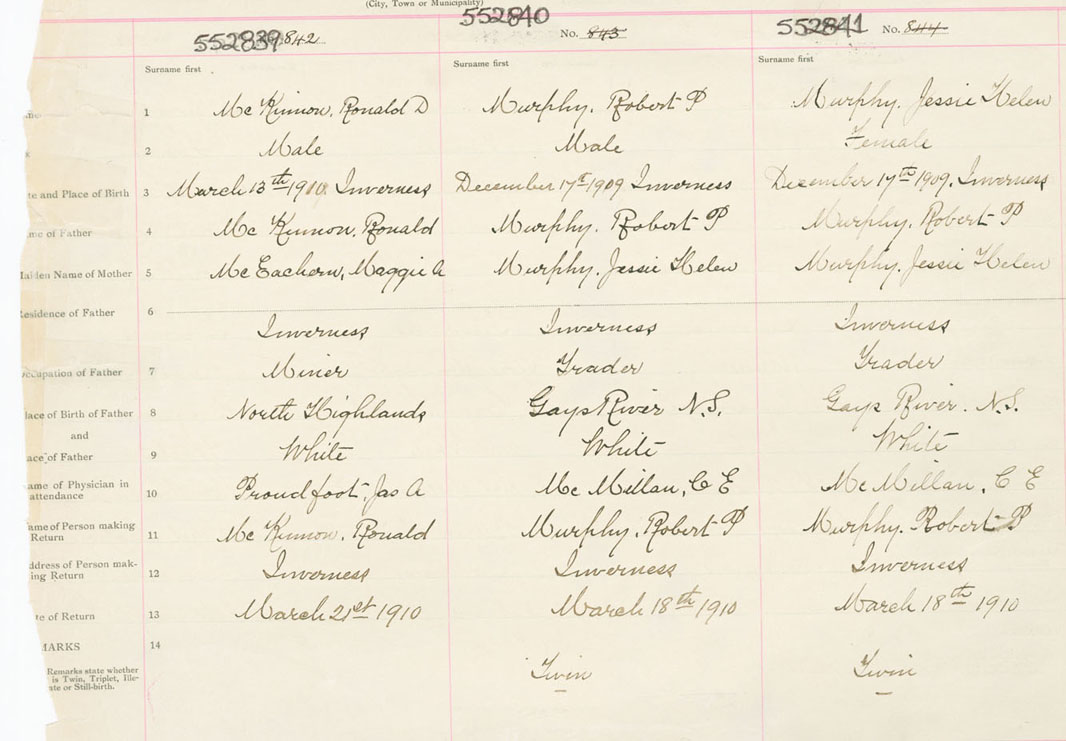 (City, Town or Municipality)
552839 842 552840 No. 843 552841 No. 844
Surname first Surname first Surname first
1 Mc Kinnon, Ronald D Murphy, Robert P Murphy, Jessie Helen
2 Male Male Female
te and Place of Birth 3 March 13th 1910 Inverness December 17th 1909 Inverness December 17th 1909, Inverness
me of Father 4 Mc Kinnon, Ronald Murphy, Robert P Murphy, Robert P
aiden Name of Mother 5 Mc Eachern, Maggie A Murphy, Jessie Helen Murphy, Jessie Helen
Residence of Father 6
Inverness Inverness Inverness
ccupation of Father 7 Miner Trader Trader
lace of Birth of Father 8 North Highlands Gays River N.S. Gays River. N.S.
and
ace of Father 9 White White White
ame of Physician in
attendance 10 Proudfoot, Jas A Mc Millan, C E Mc Millan, C E
ame of Person making
Return 11 Mc Kinnon, Ronald Murphy, Robert P Murphy, Robert P
ddress of Person mak-
ing Return 12 Inverness Inverness Inverness
te of Return 13 March 21st 1910 March 18th 1910 March 18th 1910
MARKS 14
Remarks state whether
is Twin, Triplet, Ille-
ate or Still-birth.
Twin Twin